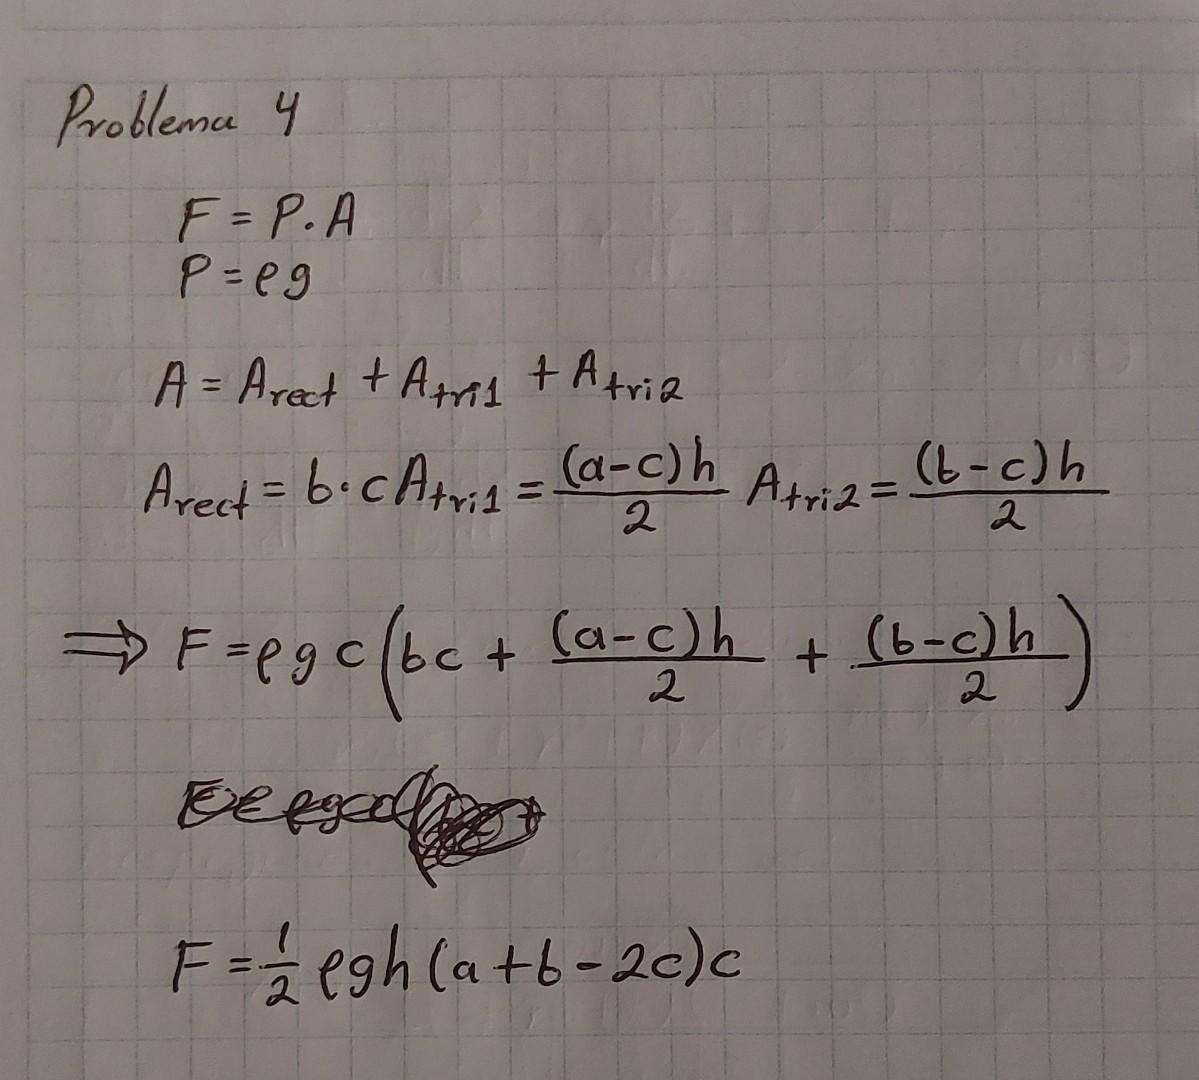 Problema 4
F = P. A
P = ρg
A = Arect + Atri1 + Atri2
Arect = b·c Atri1 = (a-c)h/2 Atri2 = (b-c)h/2
⇒ F = ρgc(bc + (a-c)h/2 + (b-c)h/2)
F = 1/2 ρgh(a+b-2c)c